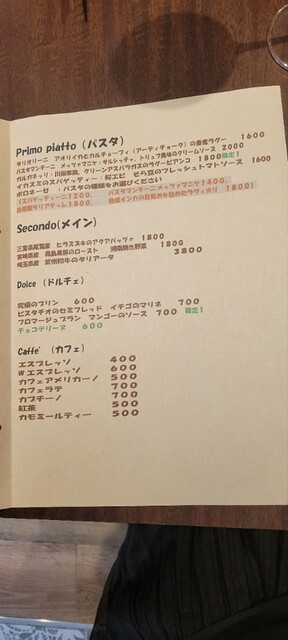 Primo piatto (パスタ)
タリオリーニ アオリイカとカルチョーフィ (アーティチョーク) の 軽煮ラグー 1600
パスタマンチーニ メッツァマニケ:サルシッチャ、トリュフ風味のクリームソース 2000
グリーンアスパラガスのラグービアンコ 1800 限定!
イカスミのスパゲッティー:桜エビ そら豆のフレッシュトマトソース 1600
ボロネーゼ :パスタの種類をお選びください
(スパゲッティーニ1200、 パスタマンチーニメッツァマニケ1400、
自家製タリアテッレ1800、 を詰めたラヴィオリ 1800)
Secondo(メイン)
三重県尾鷲産 ヒラスズキのアクアパッツァ 1800
宮崎県産 霧島黒豚のロースト 湘南鎌倉野菜 1800
埼玉県産 武州和牛のタリアータ 3800
Dolce (ドルチェ)
究極のプリン 600
ピスタチオのセミフレッド イチゴのマリネ 700
フロマージュブラン マンゴーのソース 700 限定!
チョコテリーヌ 600
Caffe' (カフェ)
エスプレッソ 400
Wエスプレッソ 600
カフェアメリカーノ 500
カフェラテ 700
カプチーノ 700
紅茶 500
カモミールティー 500